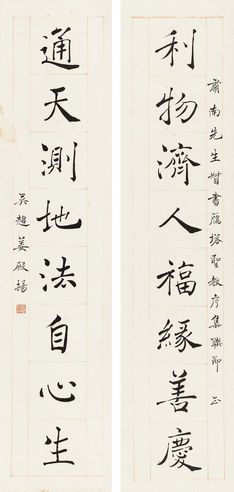 肅南先生督書雁塔聖教序集聯即正
利物濟人福緣善慶
通天測地法自心生
吳趨姜殿揚